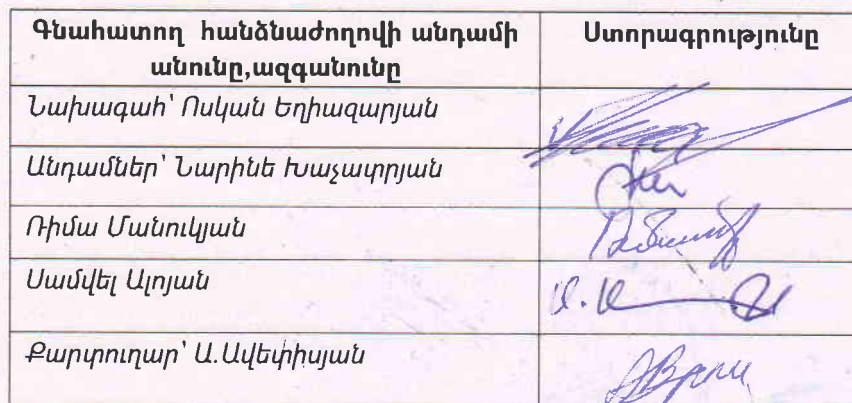 Գնահատող հանձնաժողովի անդամի
անունը,ազգանունը
Ստորագրությունը
Նախագահ՝ Ոսկան Եղիազարյան
Անդամներ՝ Նարինե Խաչատրյան
Ռիմա Մանուկյան
Սամվել Ալոյան
Քարտուղար՝ Ա.Ավետիսյան